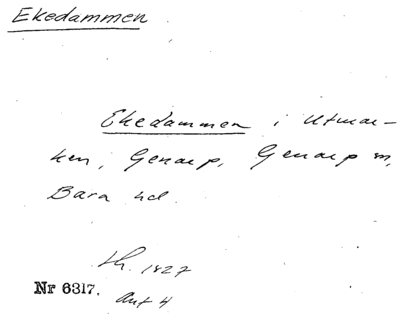 Ekedammen
Ekedammen i Utmar-
ken, Genarp, Genarp sn,
Bara hd.
Lh. 1827
Nr 6317. Akt 4